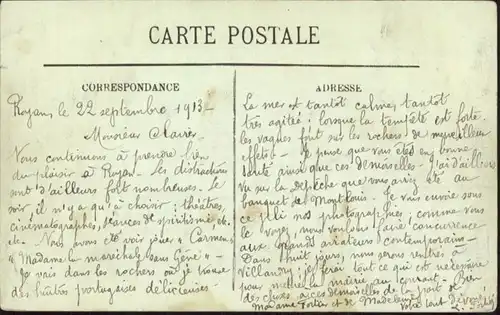 CARTE POSTALE
CORRESPONDANCE
Royan, le 22 septembre 1913 –
Monsieur Clairet
Nous continuons à prendre bien
du plaisir à Royan. Les distractions
sont d'ailleurs fort nombreuses. Le
soir, il n'y a qu'à choisir ; théâtres,
cinématographes, séances de spiritisme, etc.
etc. Nous avons été voir jouer "Carmen",
"Madame la maréchale Sans Gêne" –
Je vais dans les rochers où je trouve
des huîtres portugaises délicieuses.
ADRESSE
La mer est tantôt calme, tantôt
très agitée ; lorsque la tempête est forte,
les vagues font sur les rochers de merveilleux
effets – Je pense que vous êtes en bonne
santé ainsi que ces demoiselles – J'ai d'ailleurs
vu sur la dépêche que vous aviez été au
banquet de Montlouis. Je vous envoie sous
ce pli nos photographies ; comme vous
le voyez, nous voulons faire concurrence
aux grands aviateurs contemporains –
Dans huit jours, nous serons rentrés à
Villandry ; je ferai tout ce qui est nécessaire
pour mettre la mairie au courant – Bien
des choses à ces demoiselles de la part de
Madame et de Madeleine
Votre tout dévoué